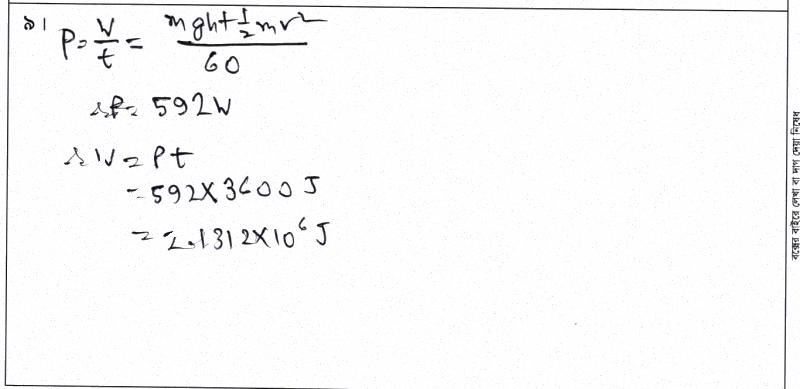 ৯। P = W/t = (mgh + 1/2 mv²)/60
∴ P = 592W
∴ W = Pt
= 592 X 3600 J
= 2.1312 X 10⁶ J
বক্সের বাইরে লেখা বা দাগ দেয়া নিষেধ